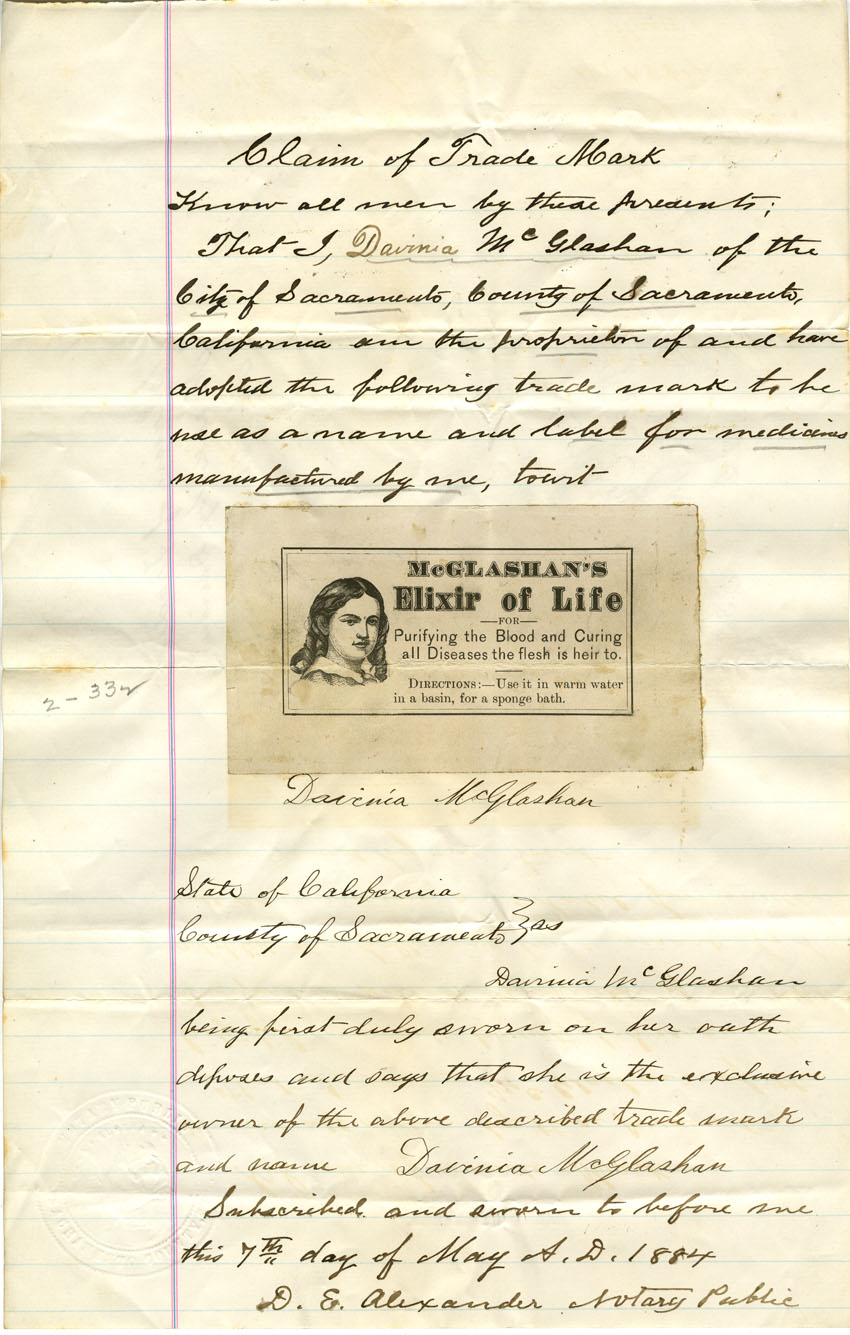 Claim of Trade Mark
Know all men by these presents;
That I, Davinia McGlashan of the
City of Sacramento, County of Sacramento,
California am the proprietor of and have
adopted the following trade mark to be
use as a name and label for medicines
manufactured by me, towit
McGLASHAN'S
Elixir of Life
—FOR—
Purifying the Blood and Curing
all Diseases the flesh is heir to.
DIRECTIONS:—Use it in warm water
in a basin, for a sponge bath.
2-332
Davinia McGlashan
State of California
County of Sacramento } ss
Davinia McGlashan
being first duly sworn on her oath
deposes and says that she is the exclusive
owner of the above described trade mark
and name Davinia McGlashan
Subscribed and sworn to before me
this 7th day of May A.D. 1884
D. E. Alexander Notary Public